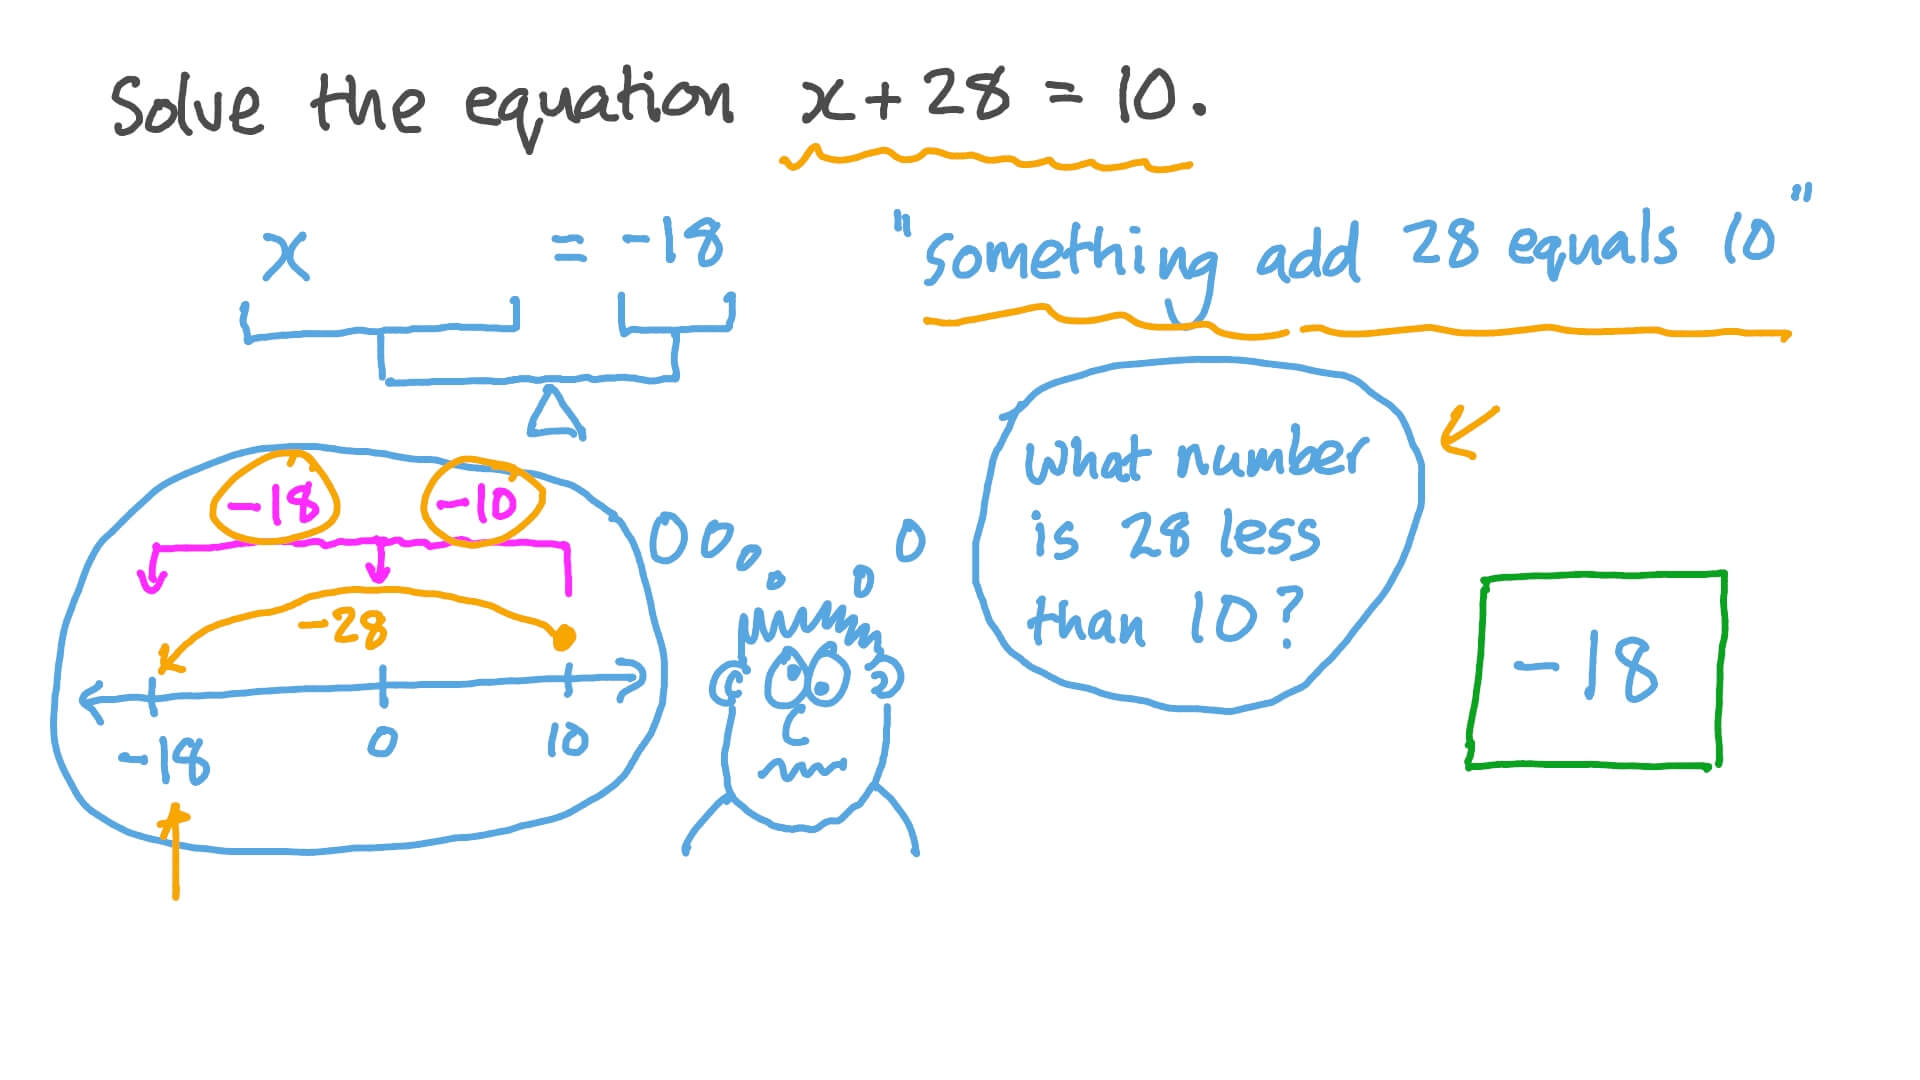 Solve the equation x + 28 = 10.
x = -18
"something add 28 equals 10"
what number
is 28 less
than 10?
-18 -10
-28
-18 0 10
-18